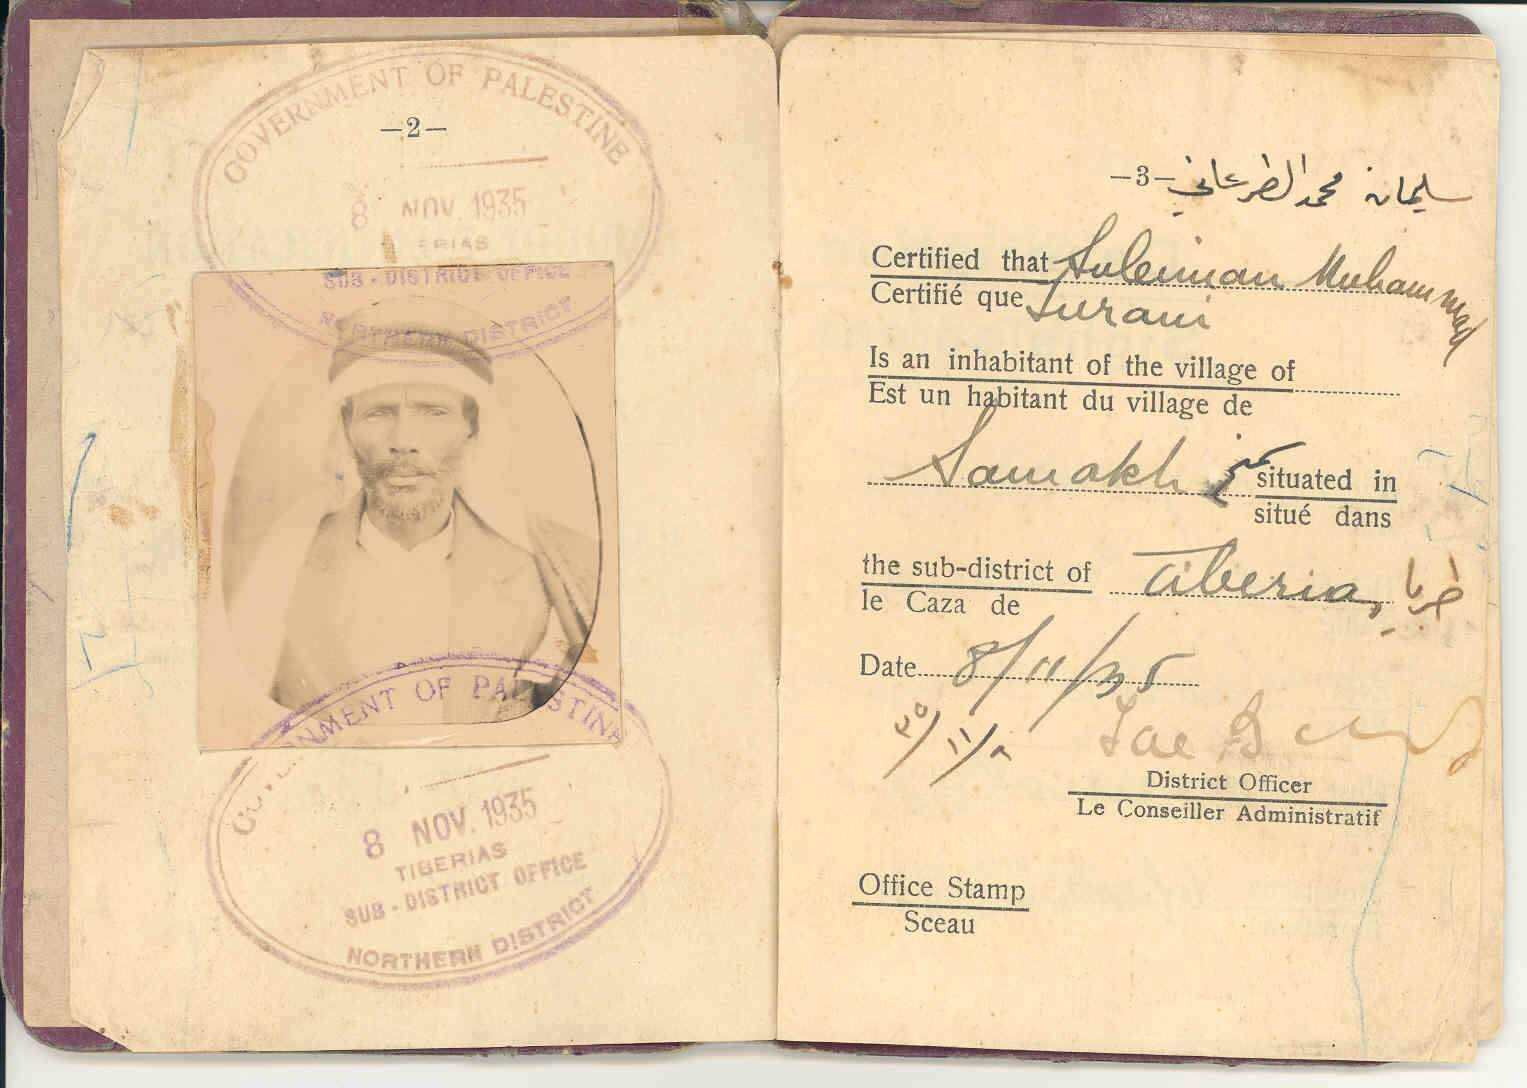 GOVERNMENT OF PALESTINE
—2—
8 NOV. 1935
ERIAS
SUB-DISTRICT OFFICE
NORTHERN DISTRICT
GOVERNMENT OF PALESTINA
8 NOV. 1935
TIBERIAS
SUB-DISTRICT OFFICE
NORTHERN DISTRICT
—3—
سليمان محمد
Certified that Suleiman Muhammad
Certifié que
Is an inhabitant of the village of
Est un habitant du village de
Samakh سمخ situated in
situé dans
the sub-district of Tiberias طبريا
le Caza de
Date 8/11/35
٣٥/١١/٨
District Officer
Le Conseiller Administratif
Office Stamp
Sceau